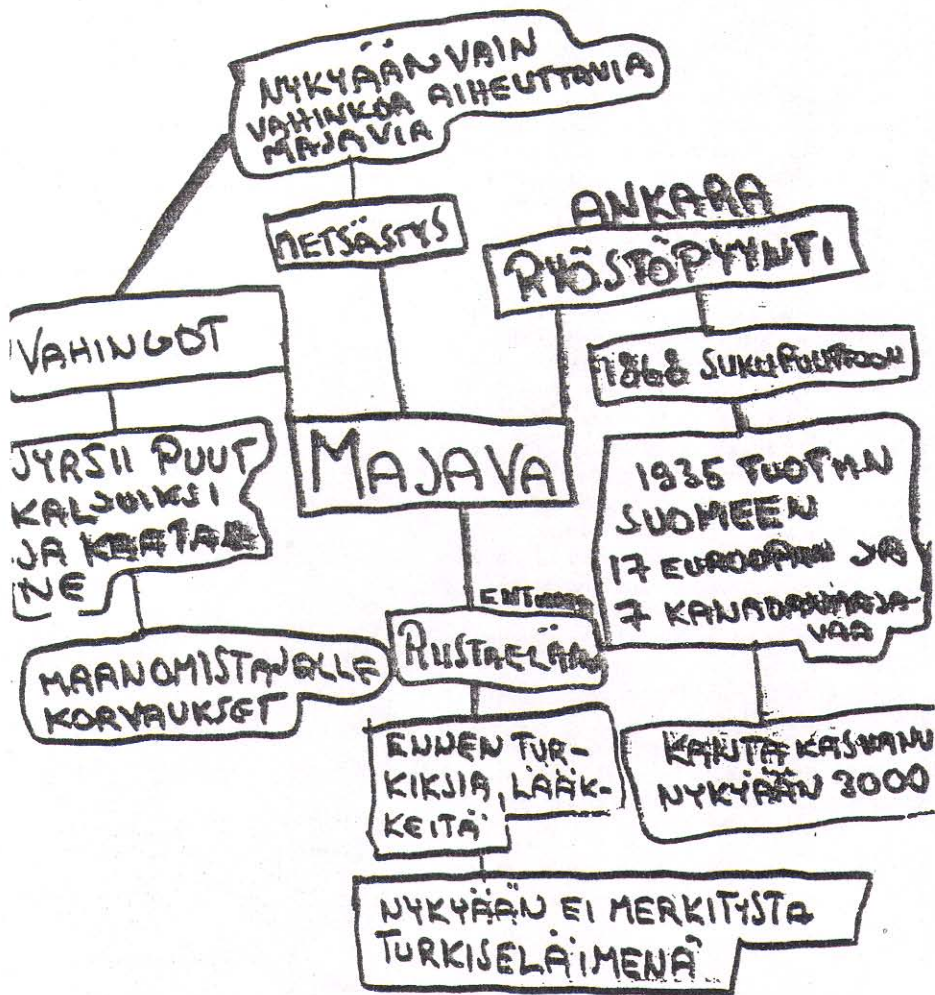 NYKYÄÄN VAIN
VAHINKOA AIHEUTTAVIA
MAJAVIA
METSÄSTYS
ANKARA
RYÖSTÖPYYNTI
VAHINGOT
1868 SUKUPUUTTOON
MAJAVA
JYRSII PUUT
KALJUIKSI
JA
NE
1935 TUOTIIN
SUOMEEN
17 EUROOPAN JA
7 KANADANMAJA-
VAA
MAANOMISTAJALLE
KORVAUKSET
RIISTAELÄIN
ENNEN TUR-
KIKSIA, LÄÄK-
KEITÄ
KANTA KASVANU
NYKYÄÄN 3000
NYKYÄÄN EI MERKITYSTA
TURKISELÄIMENÄ